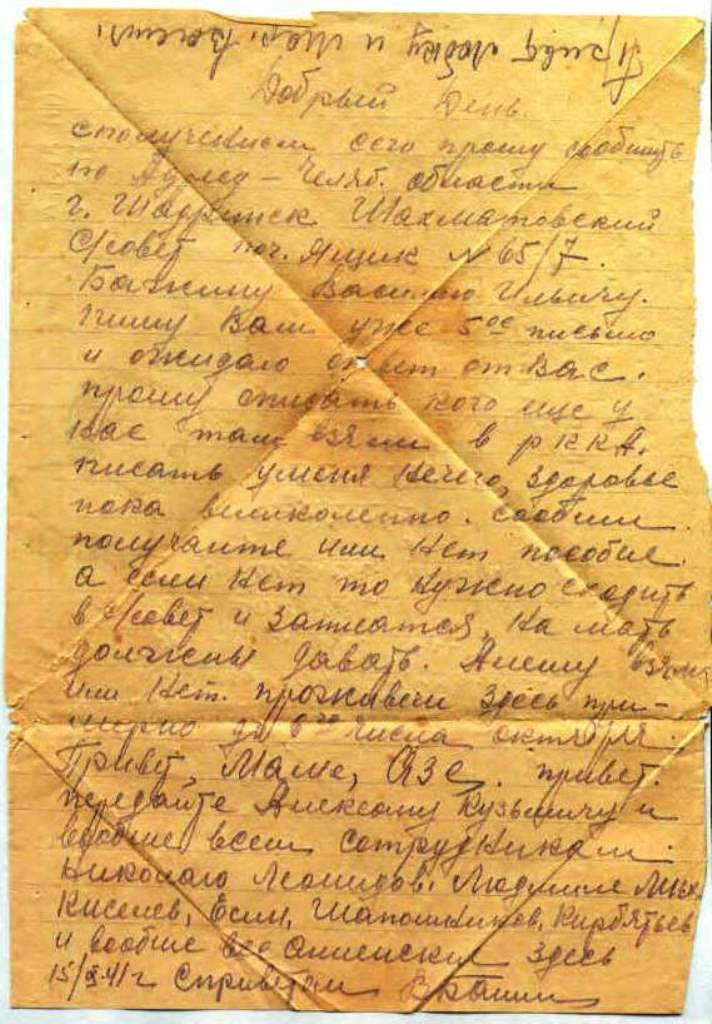 Привет Любку и Мар. Васил.
Добрый День.
с получением сего прошу сообщить
по Адресу – Челяб. области
г. Шадринск Шахматовский
С/совет поч. Ящик № 65/7.
Бажину Василию Ильичу.
пишу Вам уже 5ое письмо
и ожидаю ответ от вас.
прошу описать кого еще у
вас там взяли в РККА.
писать у меня нечего, здоровье
пока великолепно. сообщи
получаите или нет пособие.
а если нет то нужно сходить
в С/совет и записатся, на мать
должны давать. Алешу взяли
или нет. проживем здесь при-
мерно до 6го числа октября.
Привет, Маме, Азе. привет.
передайте Алексею Кузьмичу и
вообще всем сотрудникам:
Николаю Леонидов. Людмиле Мих.
Киселев, Шапошников, Кирбятьев
и вообще все здесь
15/9-41г С приветом